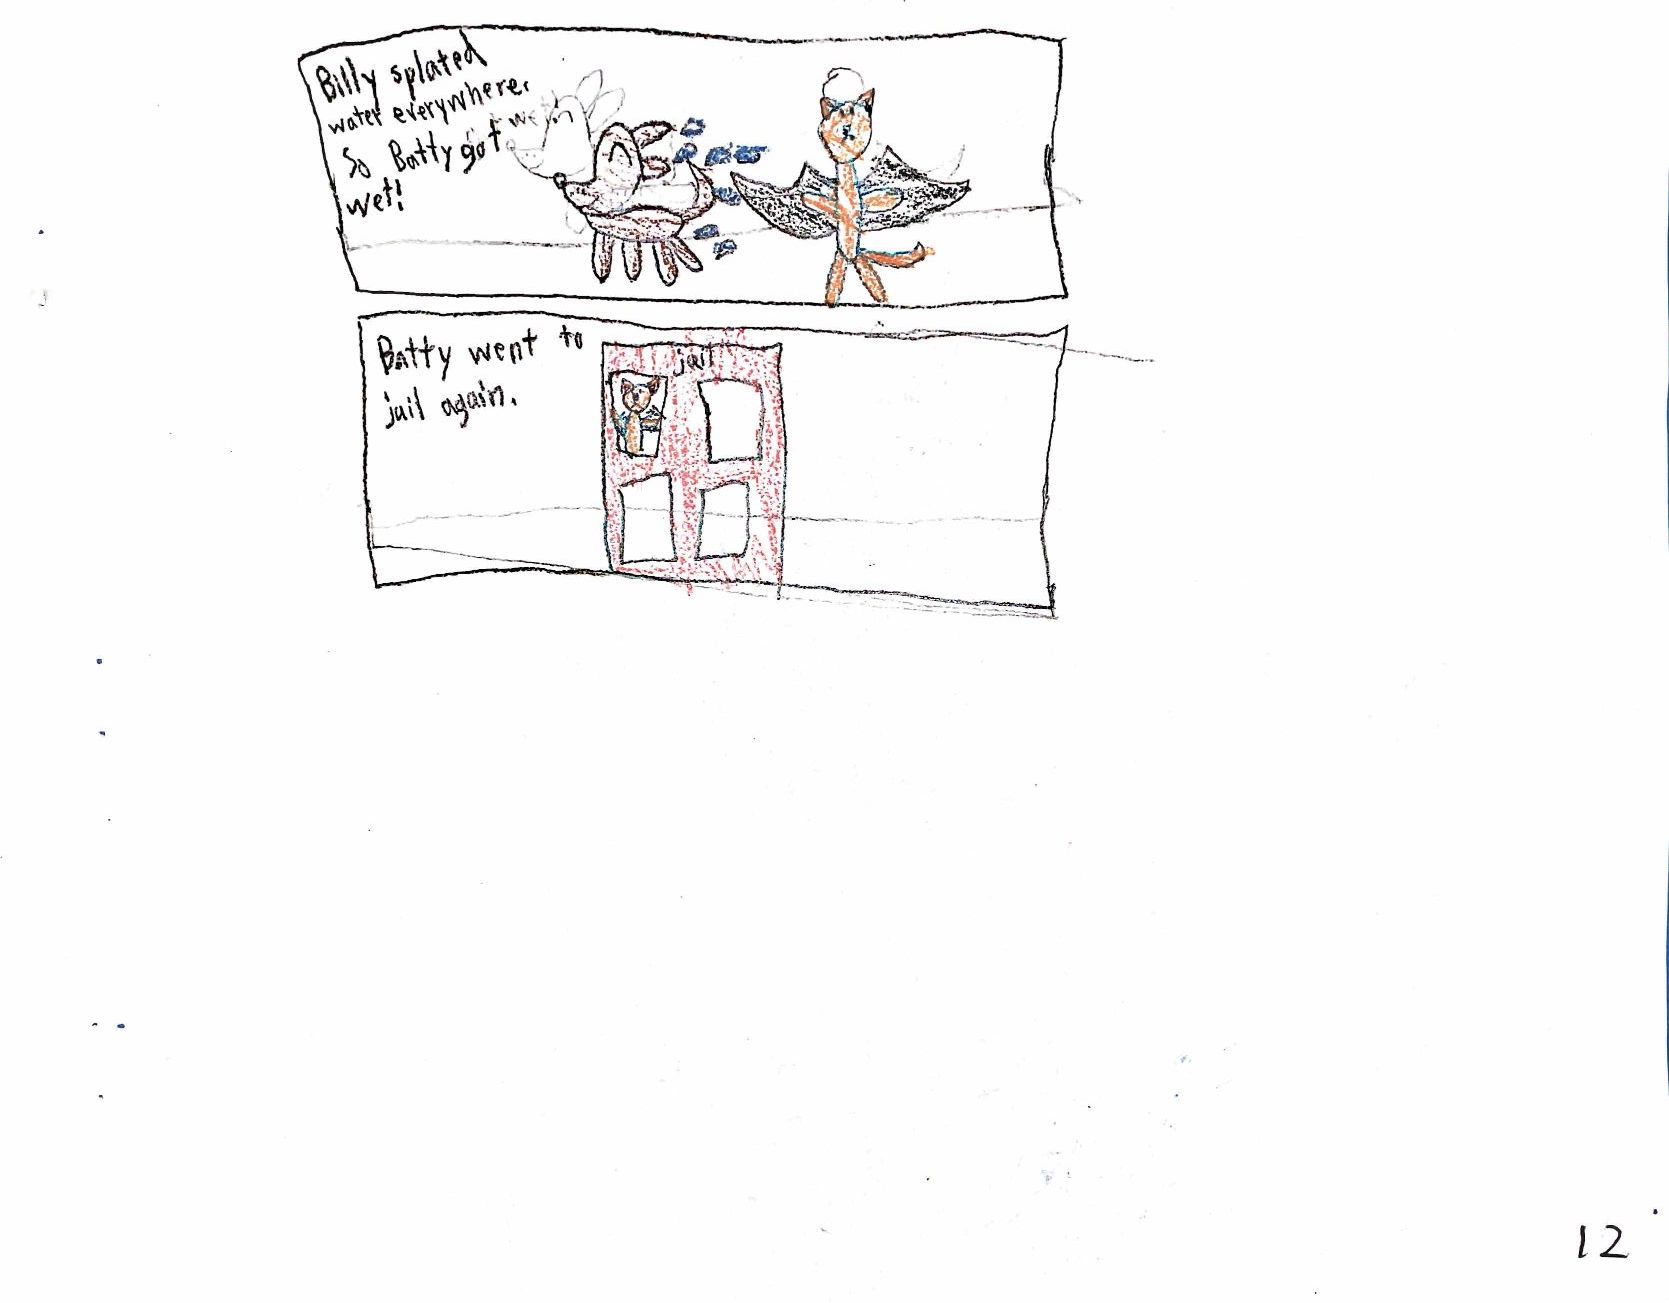 Billy splated
water everywhere.
So Batty got
wet!
Batty went to
jail again.
jail
12